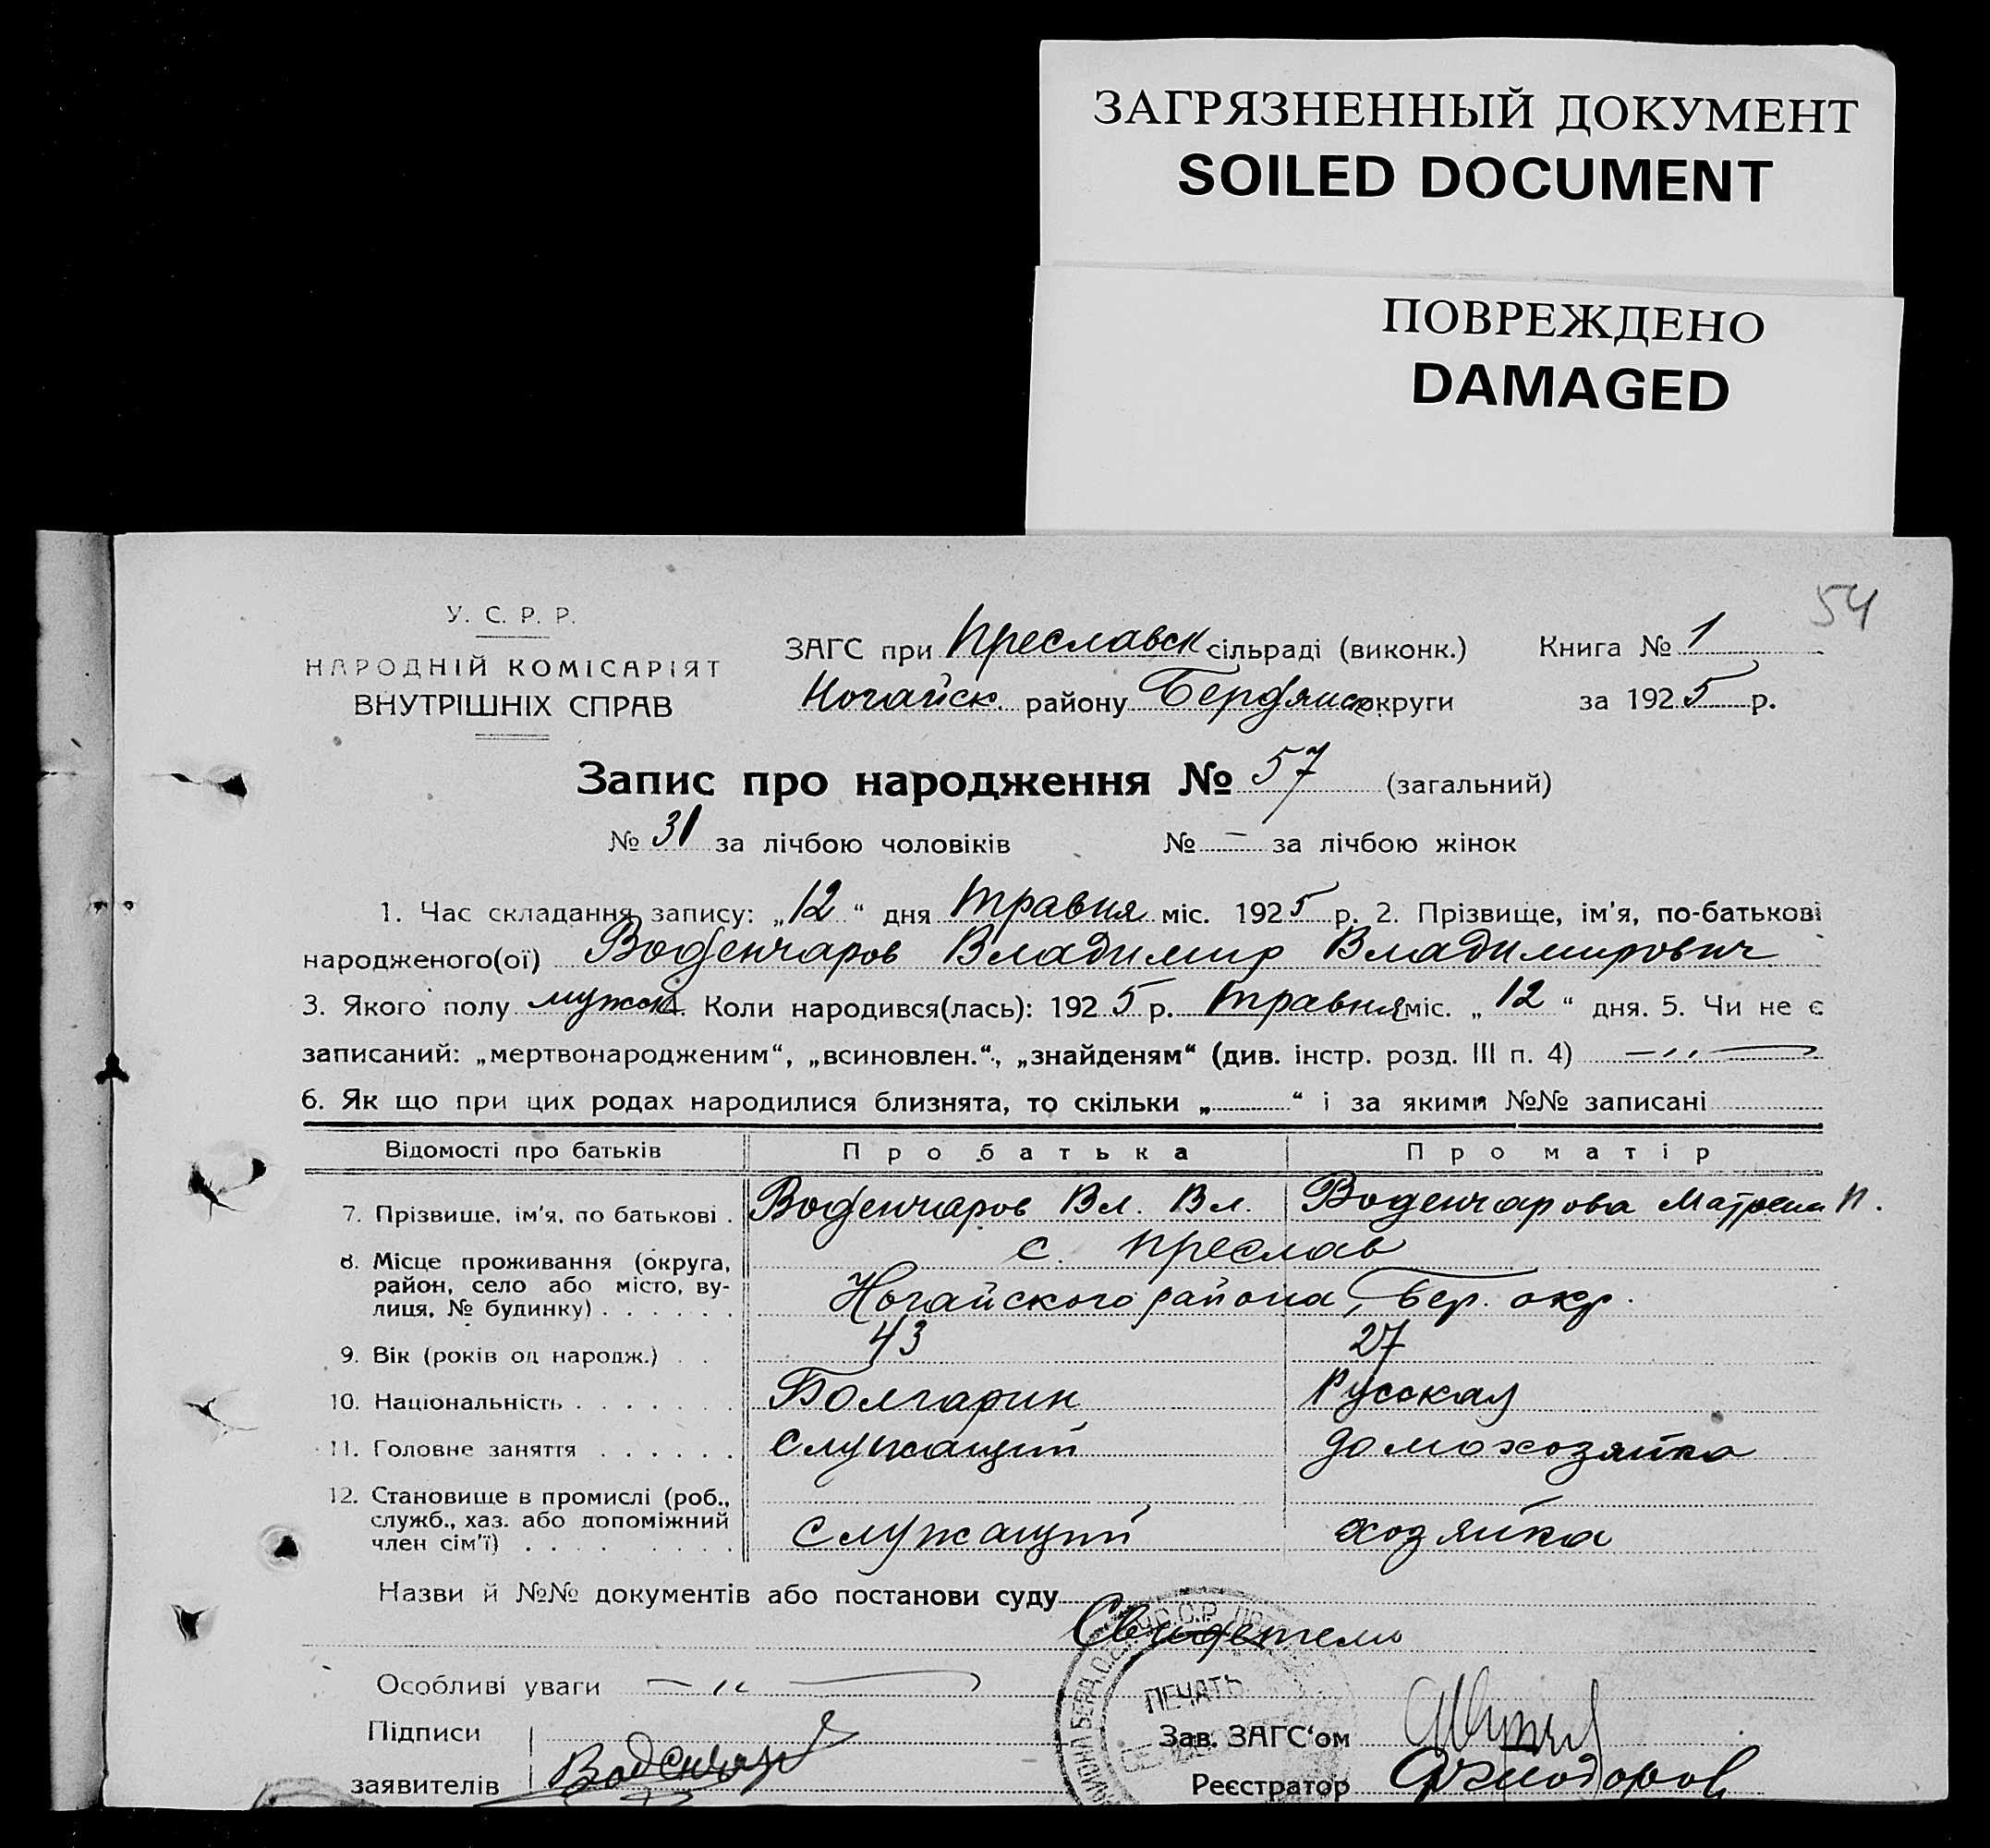 ЗАГРЯЗНЕННЫЙ ДОКУМЕНТ
SOILED DOCUMENT
ПОВРЕЖДЕНО
DAMAGED
54
У. С. Р. Р.
НАРОДНІЙ КОМІСАРІЯТ
ВНУТРІШНІХ СПРАВ
ЗАГС при Преславск сільраді (виконк.) Книга № 1
Ногайск. району Бердянск округи за 1925 р.
Запис про народження № 57 (загальний)
№ 31 за лічбою чоловіків № – за лічбою жінок
1. Час складання запису: „12“ дня травня міс. 1925 р. 2. Прізвище, ім'я, по-батькові
народженого(ої) Воденчаров Владимир Владимирович
3. Якого полу мужск 4. Коли народився(лась): 1925 р. травня міс. „12“ дня. 5. Чи не є
записаний: „мертвонародженим“, „всиновлен.“, „знайденям“ (див. інстр. розд. III п. 4) —〃—
6. Як що при цих родах народилися близнята, то скільки „ “ і за якими №№ записані
Відомості про батьків Про батька Про матір
7. Прізвище, ім'я, по батькові . Воденчаров Вл. Вл. Воденчарова Матрена П.
8. Місце проживання (округа, с. Преслав
район, село або місто, ву-
лиця, № будинку) . . . . . . Ногайского района, Бер. окр.
9. Вік (років од народж.) . . 43 27
10. Національність . . . . . . . Болгарин Русская
11. Головне заняття . . . . . . служащий домохозяйка
12. Становище в промислі (роб.,
служб., хаз. або допоміжний
член сім'ї) . . . . . . . . служащий хозяйка
Назви й №№ документів або постанови суду
Свидетели
Особливі уваги —〃—
ПЕЧАТЬ
Підписи
Зав. ЗАГС'ом
заявителів Воденчаров
Реєстратор